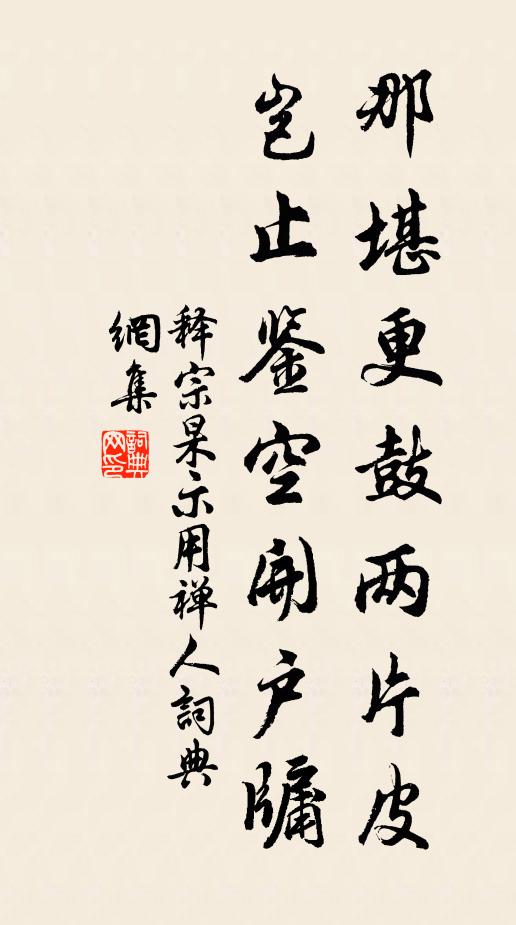 那堪更鼓两片皮
岂止鉴空開户牖
释宗杲示用禅人詞典
網集
詞典網印